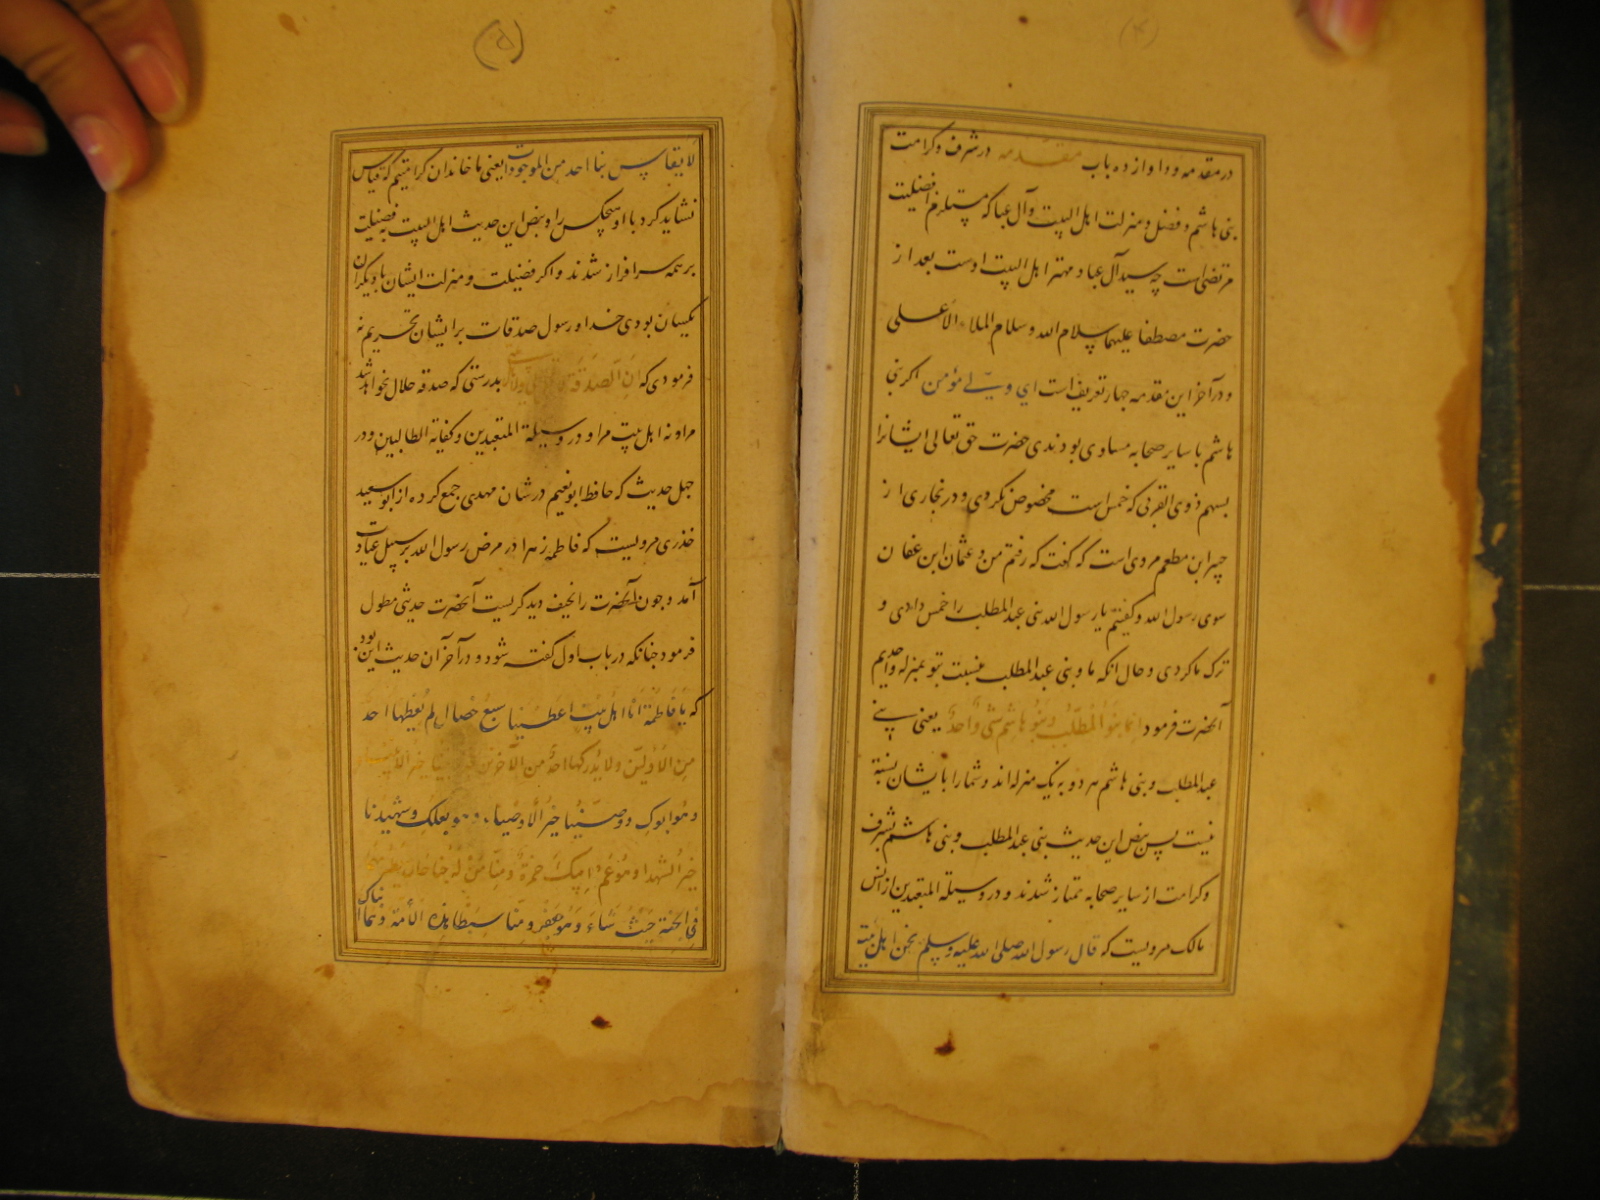 (۴)
در مقدمه و دوازده باب مقدمه در شرف و کرامت
بنی هاشم و فضل و منزلت اهل البیت و آل عبا که مستلزم افضلیت
مرتضی است چه سید آل عبا و مهتر اهل البیت اوست بعد از
حضرت مصطفا علیهما سلام الله و سلام الملاء الاعلی
و در آخر این مقدمه چهار تعریف است ای ولی مؤمن اگر بنی
هاشم با سایر صحابه مساوی بودندی حضرت حق تعالی ایشانرا
بسهم ذوی القربی که خمس است مخصوص نکردی و در بخاری از
جبیر ابن مطعم مروی است که گفت که رفتم من و عثمان ابن عفان
سوی رسول الله و گفتیم یا رسول الله بنی عبد المطلب را خمس دادی و
ترک ما کردی و حال آنکه ما و بنی عبد المطلب بنسبت بتو بمنزله واحدیم
آنحضرت فرمود انما بنو المطلب و بنو هاشم شی واحد یعنی بنی
عبد المطلب و بنی هاشم هر دو به یک منزله اند و شما را با یشان نسبت
نیست پس بنص این حدیث بنی عبد المطلب و بنی هاشم بشرف
و کرامت از سایر صحابه ممتاز شدند و در وسیلة المتعبدین از انس
مالک مرویست که قال رسول الله صلی الله علیه و سلم نحن اهل بیت
(۵)
لا یقاس بنا احد من الموجودات یعنی ما خاندان کرامتیم که قیاس
نشاید کرد با او هیچکس را و بنص این حدیث اهل البیت به فضیلت
بر همه سرافراز شدند و اگر فضیلت و منزلت ایشان با دیگران
یکسان بودی خدا و رسول صدقات بر ایشان تحریم نه
فرمودی که ان الصدقة بدرستی که صدقه حلال نخواهد شد
مرا و نه اهل بیت مرا و در وسیلة المتعبدین و کفایة الطالبین و در
چهل حدیث که حافظ ابو نعیم در شان مهدی جمع کرده از ابو سعید
خذری مرویست که فاطمه زهرا در مرض رسول الله بر سبیل عیادت
آمد و چون آنحضرت را نحیف دید گریست آنحضرت حدیثی مطول
فرمود چنانکه در باب اول گفته شود و در آخر آن حدیث این بود
که یا فاطمة انا اهل بیت اعطینا سبع خصال لم یعطها احد
من الاولین ولا یدرکها احد من الآخرین نبینا خیر الانبیاء
و هو ابوک و وصینا خیر الاوصیاء و هو بعلک و شهیدنا
خیر الشهدا و هو عم ابیک حمزة و منا من له جناحان یطیر بهما
فی الجنة حیث شاء و هو جعفر و منا سبطا هذه الامة و هما ابناک